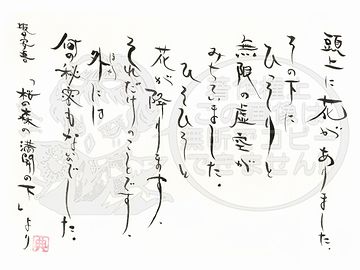 頭上に花がありました。
その下に
ひっそりと
無限の虚空が
みちていました。
ひそひそと
花が降ります。
それだけのことです。
外には
ほか
何の秘密もないのでした。
坂口安吾 「桜の森の満開の下」より